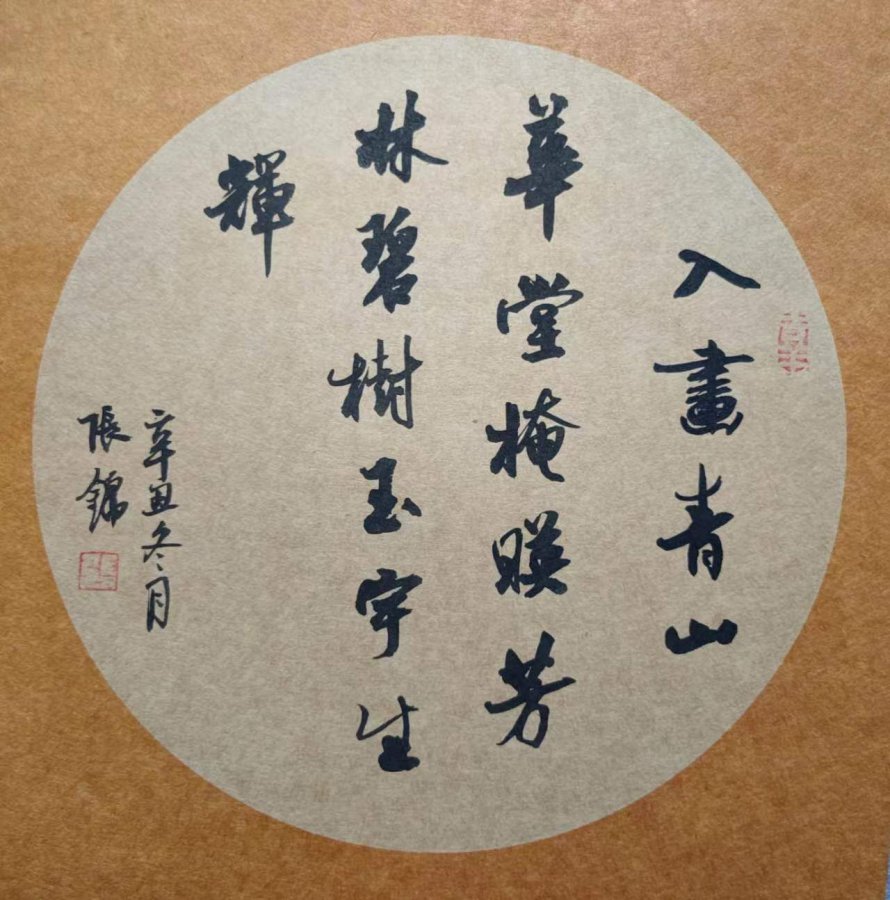 入畫青山
華堂掩暎芳
林碧樹玉宇生
輝
辛丑冬月
張錦